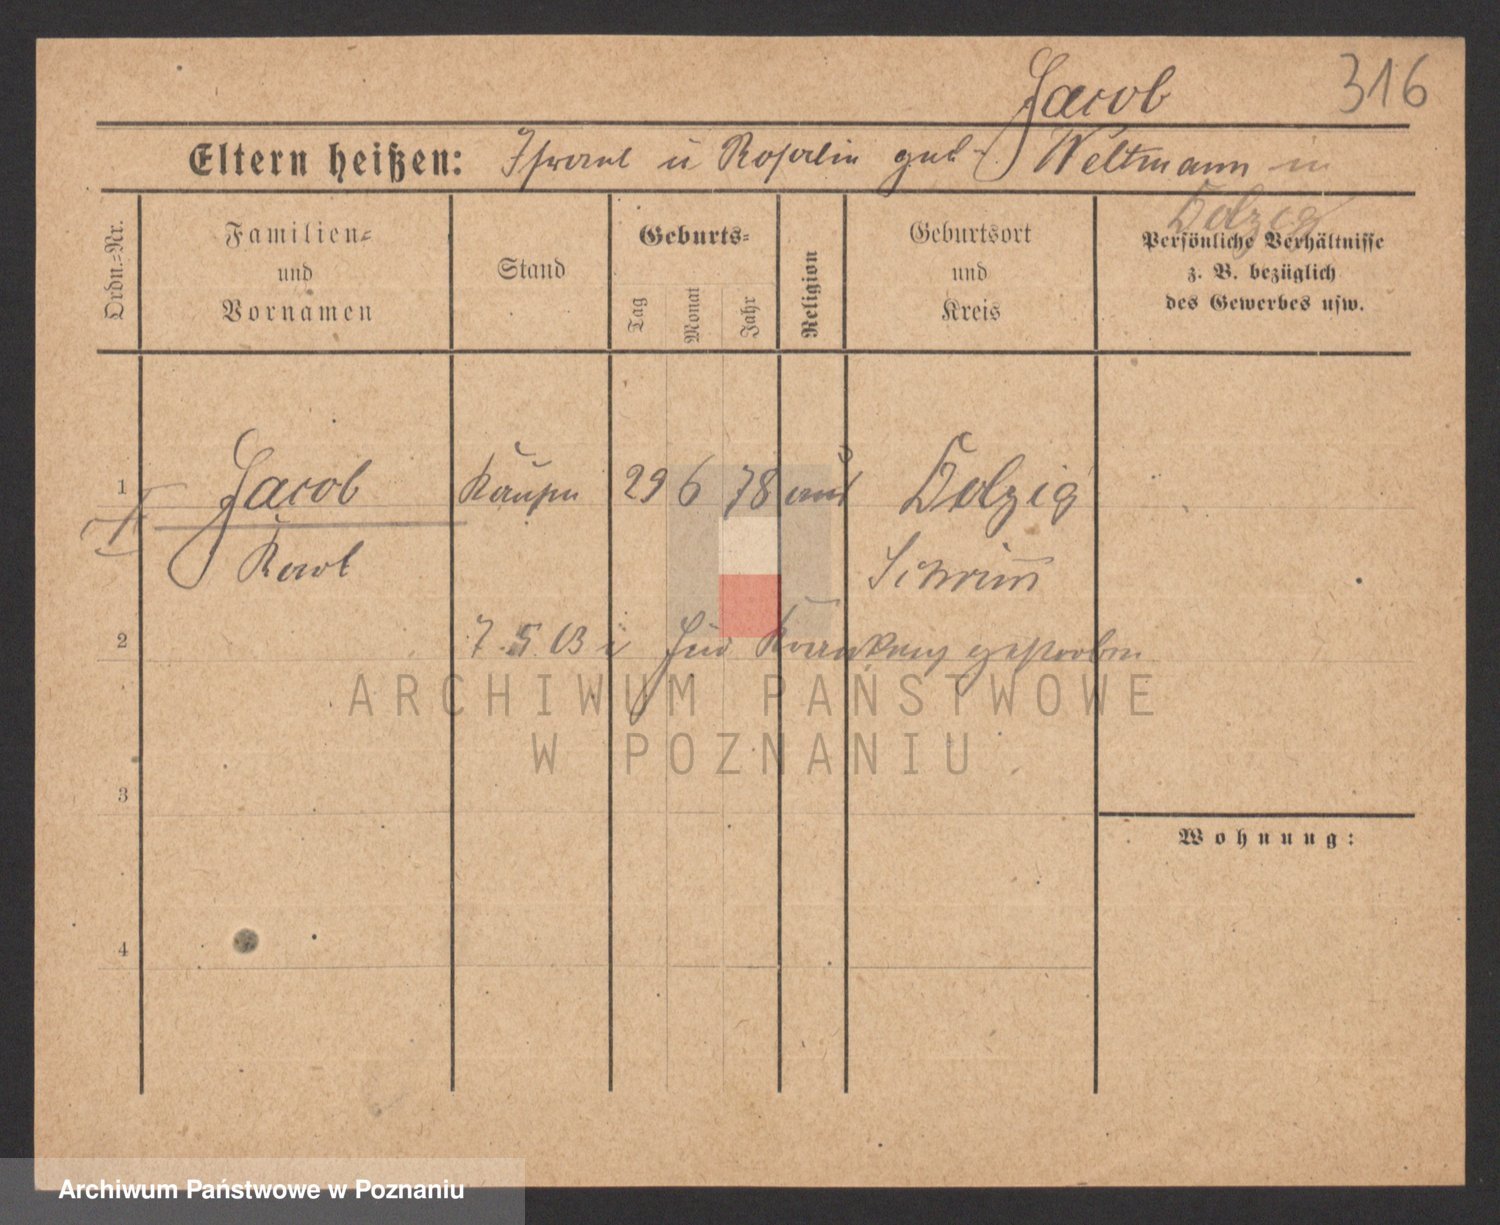 Jacob 316
Eltern heißen: Israel u Rosalie geb. Weltmann in
Dolzig
Ordn.-Nr.
Familien-
und
Vornamen
Stand
Geburts-
Tag
Monat
Jahr
Religion
Geburtsort
und
Kreis
Persönliche Verhältnisse
z. B. bezüglich
des Gewerbes usw.
1 Jacob Kaufm 29 6 78 Dolzig
Karl Schrimm
2 7. 5. 03 i Jüd Krankenh gestorben
ARCHIWUM PAŃSTWOWE
W POZNANIU
3
Wohnung:
4
Archiwum Państwowe w Poznaniu